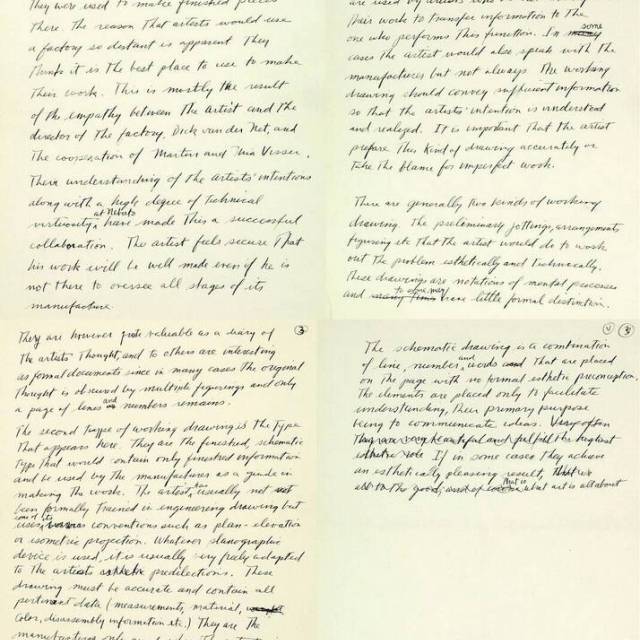 They were used to make finished pieces
there. The reason that artists would use
a factory so distant is apparent. They
think it is the best place to use to make
their work. This is mostly the result
of the empathy between the artist and the
director of the factory, Dick van der Net, and
the cooperation of Martin and Mia Visser.
Their understanding of the artists' intentions
along with a high degree of technical
virtuosity at Nebato have made this a successful
collaboration. The artist feels secure that
his work will be well made even if he is
not there to oversee all stages of its
manufacture.
are used by artists
their work to transfer information to the
one who performs this function. In some
cases the artist would also speak with the
manufacturer but not always. The working
drawing should convey sufficient information
so that the artists' intention is understood
and realized. It is important that the artist
prepare this kind of drawing accurately or
take the blame for imperfect work.
There are generally two kinds of working
drawing. The preliminary jottings, arrangements
figuring etc that the artist would do to work
out the problem esthetically and technically.
These drawings are notations of mental processes
and to some may have little formal distinction.
3
They are however quite valuable as a diary of
the artists thought, and to others are interesting
as formal documents since in many cases the original
thought is obscured by multiple figurings and only
a page of lines and numbers remains.
The second type of working drawing is the type
that appears here. They are the finished, schematic
type that would contain only finished information
and be used by the manufacturer as a guide in
making the work. The artist has usually not
been formally trained in engineering drawing but
uses some of its conventions such as plan-elevation
or isometric projection. Whatever stenographic
device is used, it is usually very freely adapted
to the artists predilections. These
drawing must be accurate and contain all
pertinent data (measurements, material,
color, disassembly information etc.) They are the
manufacturers only
4
3
The schematic drawing is a combination
of line, number and words that are placed
on the page with no formal esthetic preconception.
The elements are placed only to facilitate
understanding, their primary purpose
being to communicate ideas. Very often
they are very beautiful and fulfill the highest
esthetic role If in some cases they achieve
an esthetically pleasing result,
all to the good, that is what art is all about